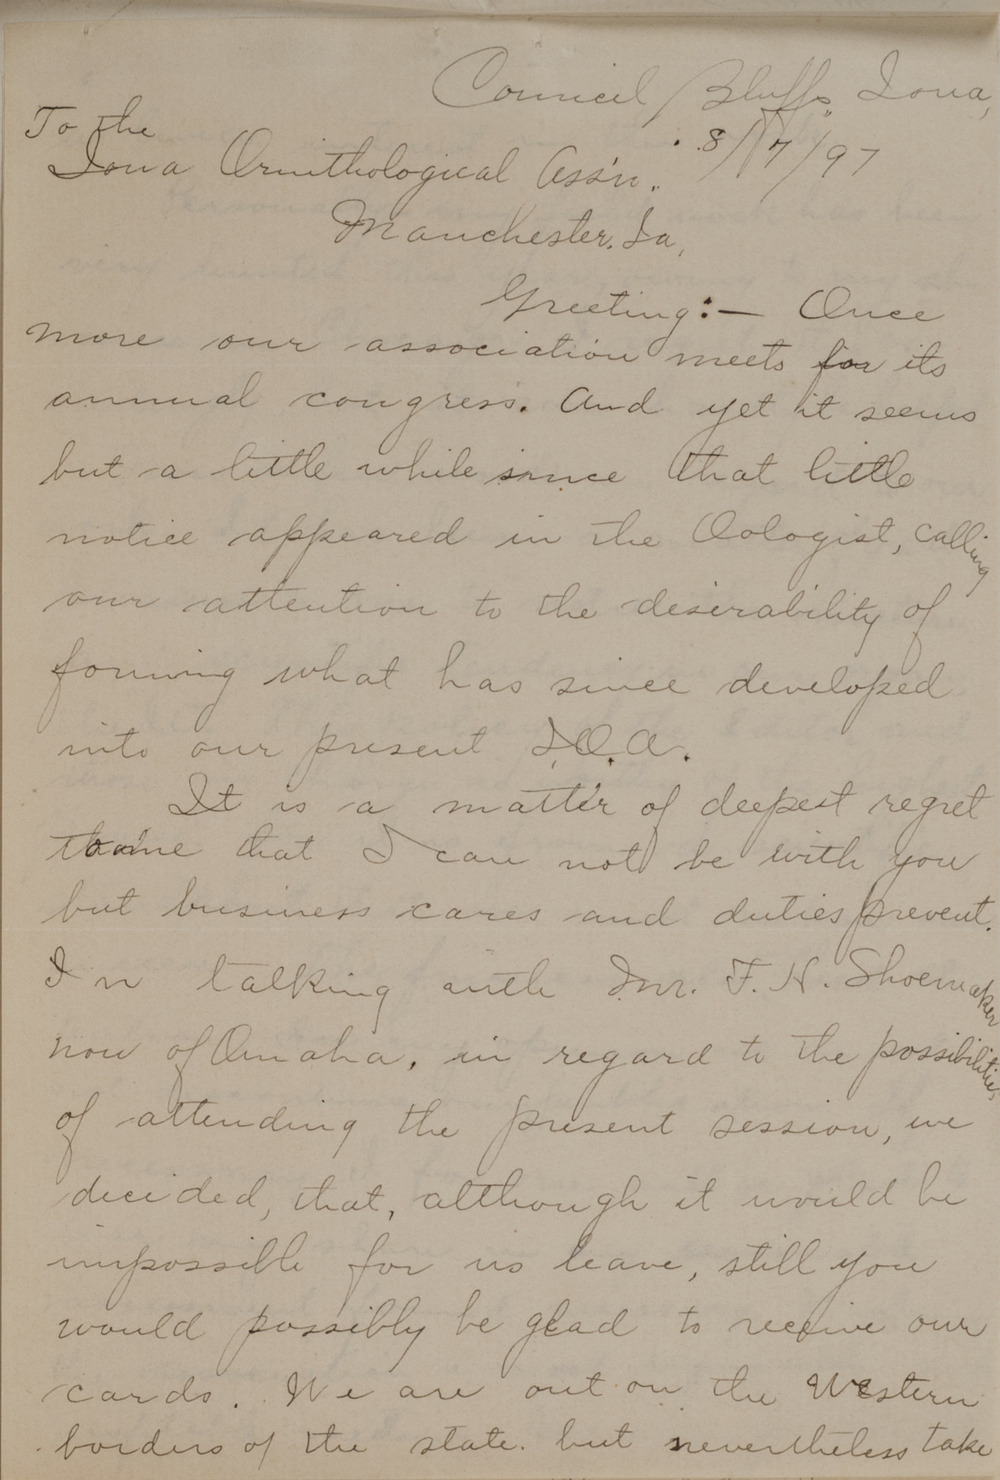 Council Bluffs, Iowa,
To the
8/17/97
Iowa Ornithological Ass'n.
Manchester. Ia,
Greeting:— Once
more our association meets for its
annual congress. And yet it seems
but a little while since that little
notice appeared in the Oologist, calling
our attention to the desirability of
forming what has since developed
into our present I.O.A.
It is a matter of deepest regret
to me that I can not be with you
but business cares and duties prevent.
In talking with Mr. F. H. Shoemaker
now of Omaha, in regard to the possibilities
of attending the present session, we
decided, that, although it would be
impossible for us leave, still you
would possibly be glad to receive our
cards. We are out on the Western
borders of the state. but nevertheless take